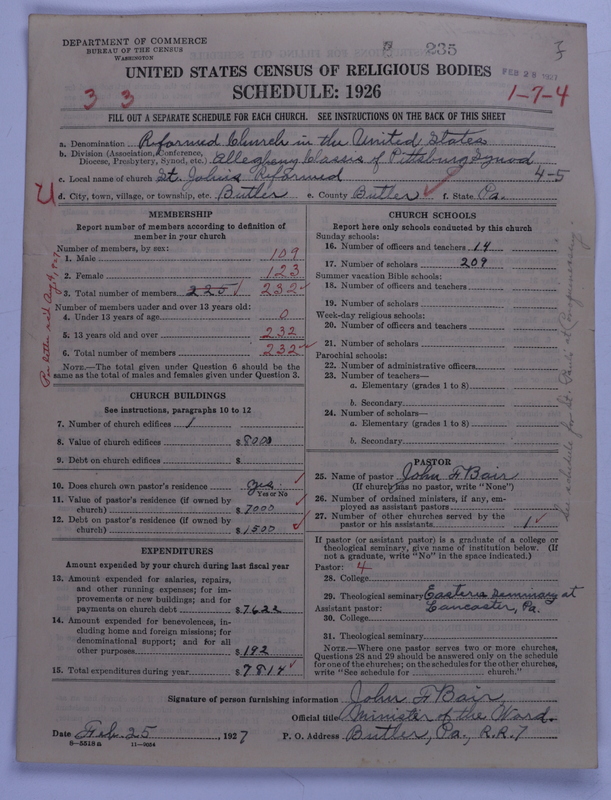 DEPARTMENT OF COMMERCE
BUREAU OF THE CENSUS
WASHINGTON
235
FEB 28 1927
UNITED STATES CENSUS OF RELIGIOUS BODIES
SCHEDULE: 1926
3 3
1-7-4
FILL OUT A SEPARATE SCHEDULE FOR EACH CHURCH. SEE INSTRUCTIONS ON THE BACK OF THIS SHEET
a. Denomination Reformed Church in the United States
b. Division (Association, Conference, Diocese, Presbytery, Synod, etc.) Allegheny Classis of Pittsburg Synod
c. Local name of church St. John's Reformed 4-5
d. City, town, village, or township, etc. Butler e. County Butler f. State Pa.
MEMBERSHIP
Report number of members according to definition of
member in your church
Number of members, by sex:
1. Male 109
2. Female 123
3. Total number of members 225 232
Number of members under and over 13 years old:
4. Under 13 years of age 0
5. 13 years old and over 232
6. Total number of members 232
NOTE.—The total given under Question 6 should be
same as the total of males and females given under Question 3.
Per letter rec'd Aug. 4, 1927
CHURCH BUILDINGS
See instructions, paragraphs 10 to 12
7. Number of church edifices 1
8. Value of church edifices $8000
9. Debt on church edifices $
10. Does church own pastor's residence? yes
Yes or No
11. Value of pastor's residence (if owned by
church) $7000
12. Debt on pastor's residence (if owned by
church) $1500
EXPENDITURES
Amount expended by your church during last fiscal year
13. Amount expended for salaries, repairs,
and other running expenses; for im-
provements or new buildings; and for
payments on church debt $7622
14. Amount expended for benevolences, in-
cluding home and foreign missions; for
denominational support; and for all
other purposes $192
15. Total expenditures during year $7814
CHURCH SCHOOLS
Report here only schools conducted by this church
Sunday schools:
16. Number of officers and teachers 14
17. Number of scholars 209
Summer vacation Bible schools:
18. Number of officers and teachers
19. Number of scholars
Week-day religious schools:
20. Number of officers and teachers
21. Number of scholars
Parochial schools:
22. Number of administrative officers
23. Number of teachers—
a. Elementary (grades 1 to 8)
b. Secondary
24. Number of scholars—
a. Elementary (grades 1 to 8)
b. Secondary
See schedule for St. Paul's at
PASTOR
25. Name of pastor John F Bair
(If church has no pastor, write "None")
26. Number of ordained ministers, if any, em-
ployed as assistant pastors
27. Number of other churches served by the
pastor or his assistants 1
If pastor (or assistant pastor) is a graduate of a college or
theological seminary, give name of institution below. (If
not a graduate, write "No" in the space indicated.)
Pastor: 4
28. College
29. Theological seminary Eastern Seminary at
Assistant pastor: Lancaster, Pa.
30. College
31. Theological seminary
NOTE.—Where one pastor serves two or more churches,
Questions 28 and 29 should be answered only on the schedule
for one of the churches; on the schedules for the other churches,
write "See schedule for church."
Signature of person furnishing information John F Bair
Official title Minister of the Word.
Date Feb. 25, 1927 P. O. Address Butler, Pa., R.R. 7
8-5518a 11-9034